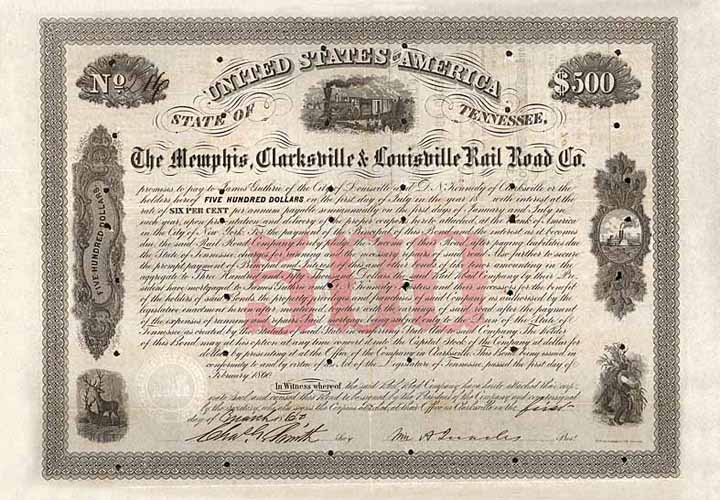 UNITED STATES OF AMERICA
No 
$500
STATE OF TENNESSEE.
The Memphis, Clarksville & Louisville Rail Road Co.
promises to pay to James Guthrie of the City of Louisville and D. N. Kennedy of Clarksville or the
holders hereof FIVE HUNDRED DOLLARS on the first day of July in the year 18 with interest at the
rate of SIX PER CENT per annum payable semiannually on the first days of January and July in
each year, upon presentation and delivery of the proper coupon hereto attached, at the Bank of America
in the City of New York. For the payment of the Principal of this Bond and the interest as it becomes
due, the said Rail Road Company hereby pledge the Income of their Road, after paying liabilities due
the State of Tennessee, charges for running and the necessary repairs of said road. Also further to secure
the prompt payment of Principal and Interest of said
aggregate to Three Hundred and fifty Thousand Dollars the said Rail Road Company by their Pre-
sident have mortgaged to James Guthrie and D. N. Kennedy Trustees and their successors for the benefit
of the holders of said Bonds, the property, and franchises of said Company as authorised by the
legislative enactment together with the earnings of said road after the payment
of the expenses of running and repairs Said mortgage being subject only to the Lien of the State of
Tennessee as created by the Statutes of said State on account of State Aid to said Company. The Holder
of this Bond may at his option at any time convert it into the Capital Stock of the Company at dollar for
dollar by presenting it at the Office of the Company in Clarksville. This Bond being issued in
conformity to and by virtue of an Act of the Legislature of Tennessee passed the first day of
February 1860.
In Witness whereof the said Rail Road Company have hereto attached their corpo-
rate Seal and caused this Bond to be signed by the President of the Company and countersigned
by the Secretary, who also signs the Coupons attached, at their Office in Clarksville on the first
day of March
Secy
Prest
FIVE HUNDRED DOLLARS
500